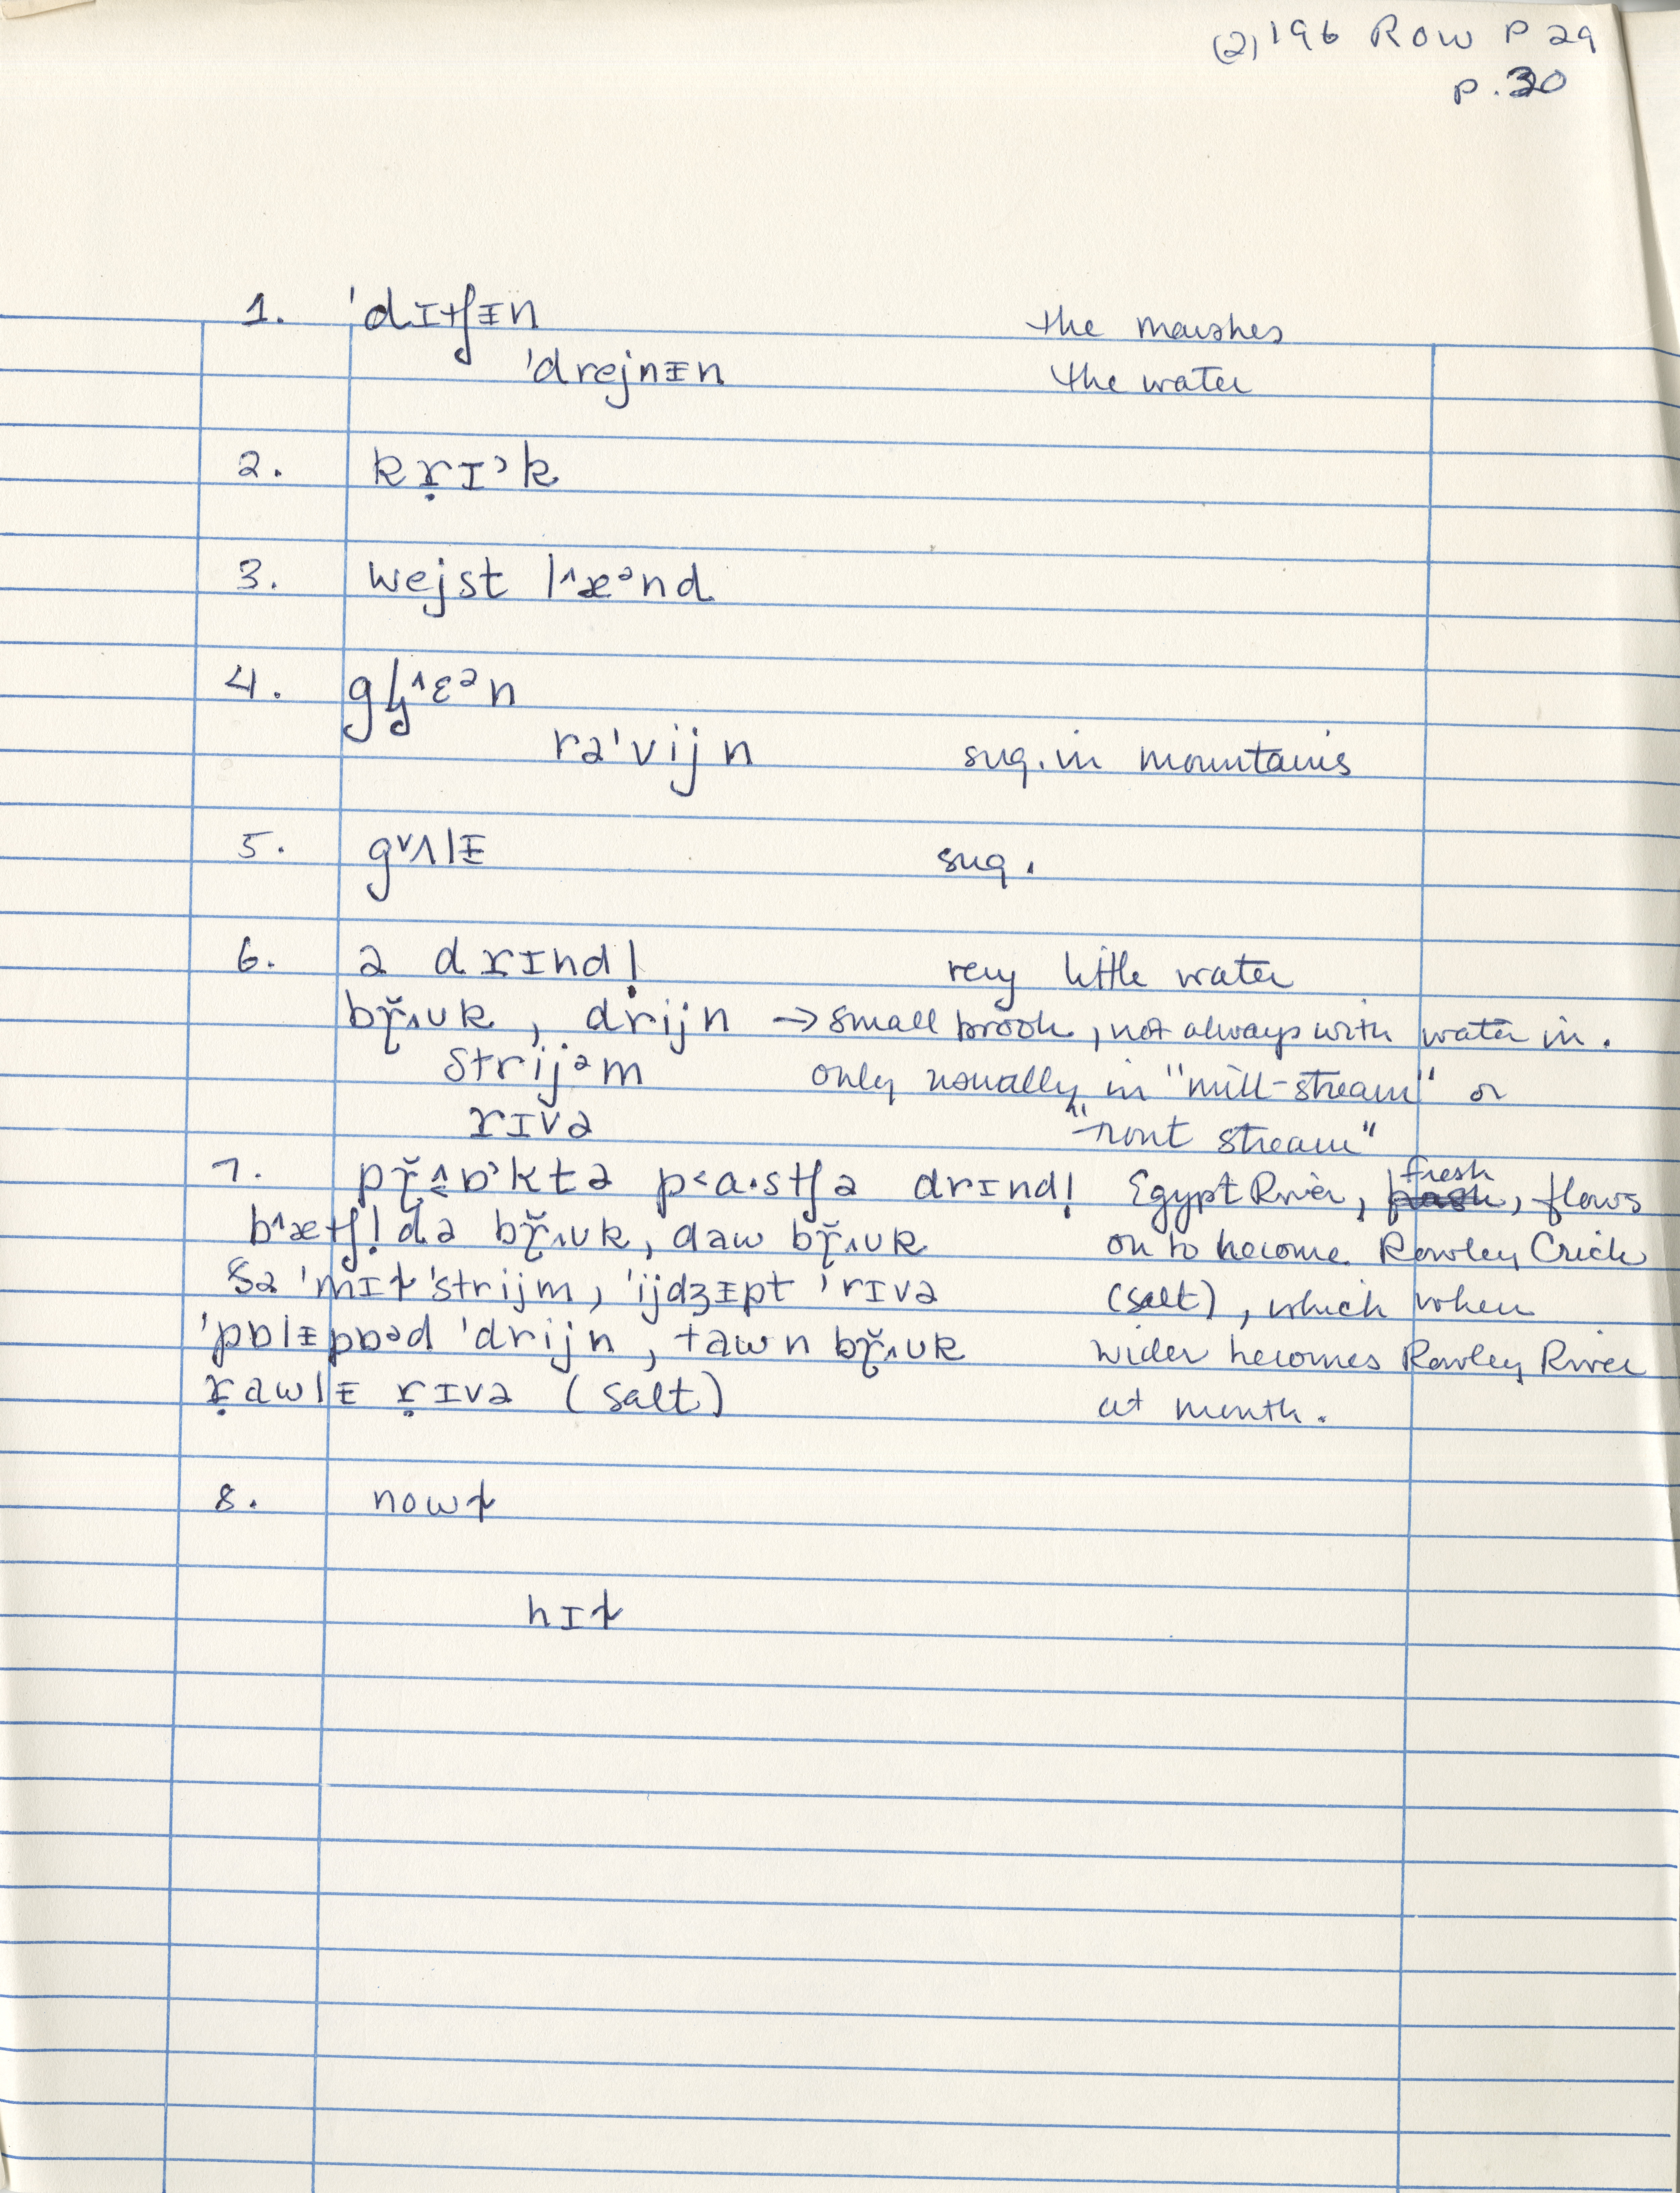 (2) 196 ROW P 29
p. 30
1. 'dɪtʃᵻn the marshes
'drejnᵻn the water
2. kṛɪ˒k
3. wejst l^æᵊnd
4. gl̡^ɛᵊn
rə'vijn sug. in mountains
5. g˅ʌlᵻ sug.
6. ə drɪnd! very little water
br̯̆ʌʊk, drijn → small brook, not always with water in.
strijᵊm only usually in "mill-stream" or
rɪvə "trout stream"
7. pr̯̆ʌɒ˒ktə p˂a·stʃə drɪnd! Egypt River, fresh, flows
b^ætʃl̩də br̯̆ʌʊk, daw br̯̆ʌʊk on to become Rowley Crick
ðə 'mɪɫ 'strijm, 'ijdʒᵻpt 'rɪvə (salt), which when
'pɒlᵻpɒᵊd 'drijn, tawn br̯̆ʌʊk wider becomes Rowley River
ṛawlᵻ ṛɪvə (salt) at mouth.
8. nowɫ
hɪɫ